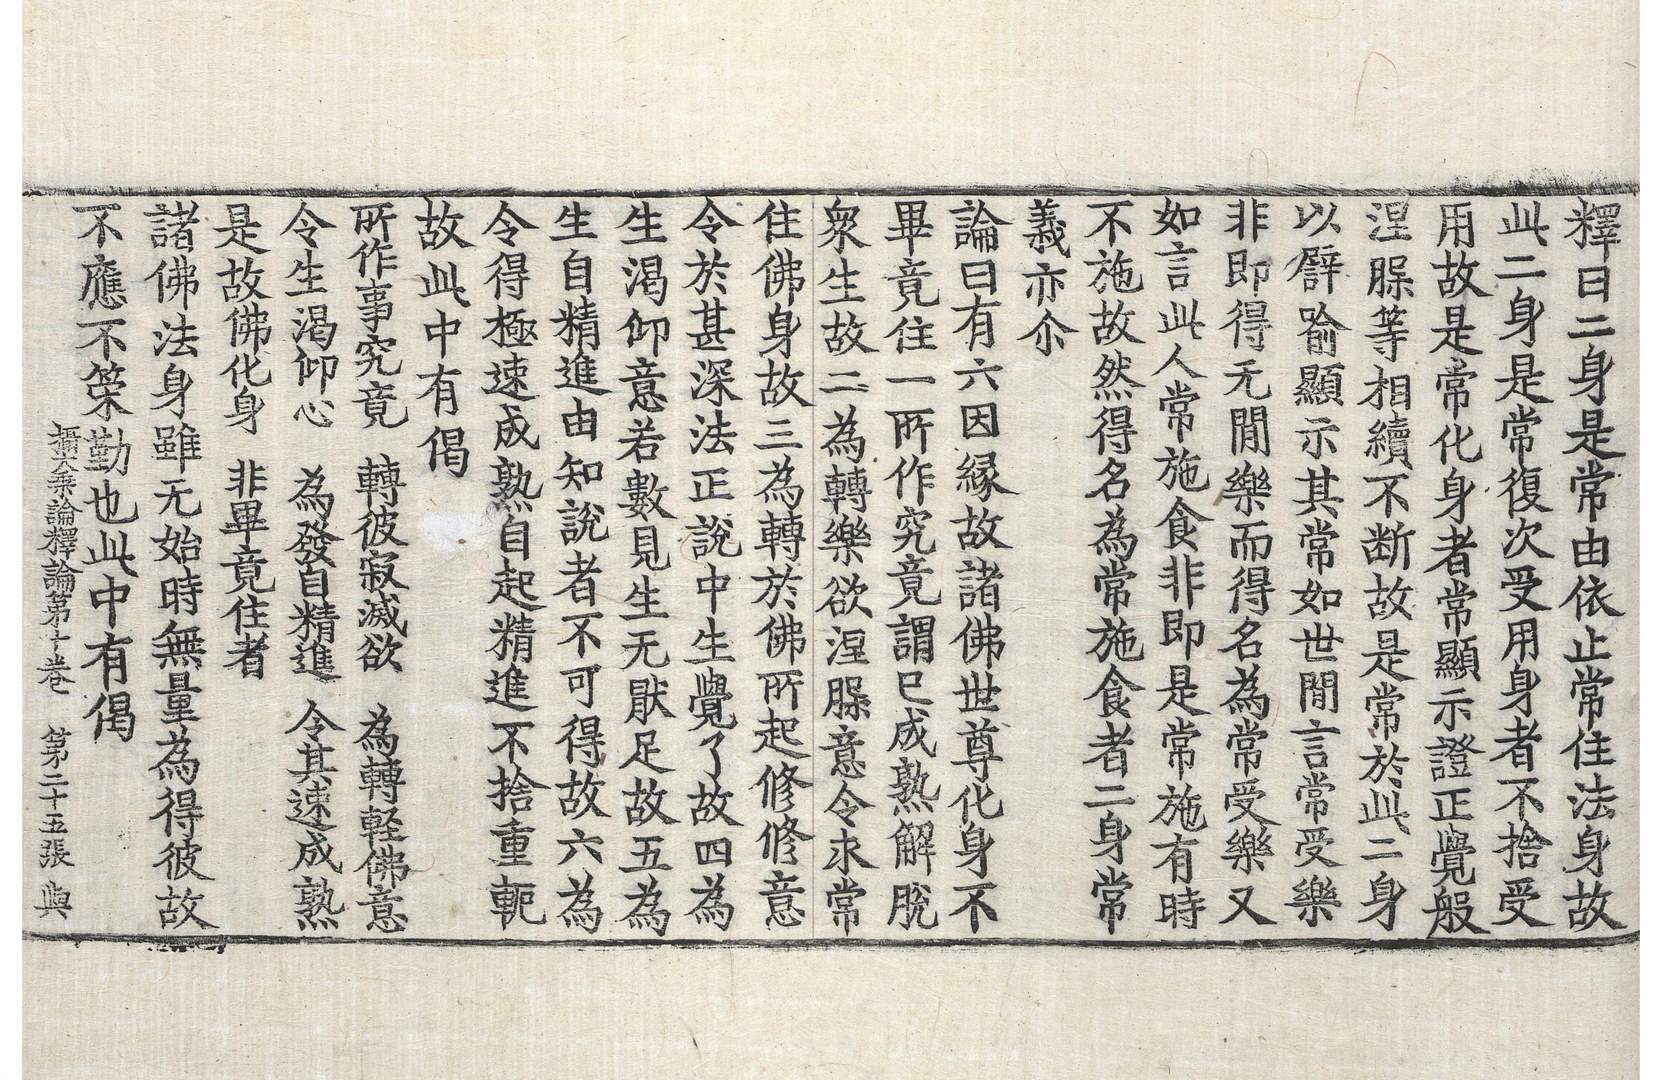 釋曰二身是常由依止常住法身故
此二身是常復次受用身者不捨受
用故是常化身者常顯示證正覺般
涅腬等相續不断故是常於此二身
以譬喻顯示其常如世間言常受樂
非即得无閒樂而得名為常受樂又
如言此人常施食非即是常施有時
不施故然得名為常施食者二身常
義亦尒
論曰有六因縁故諸佛世尊化身不
畢竟住一所作究竟謂已成熟解脫
衆生故二為轉樂欲涅腬意令求常
住佛身故三為轉於佛所起修修意
令於甚深法正說中生覺了故四為
生渴仰意若數見生无猒足故五為
生自精進由知說者不可得故六為
令得極速成熟自起精進不捨重軛
故此中有偈
所作事究竟 轉彼寂滅欲 為轉軽佛意
令生渴仰心 為發自精進 令其速成熟
是故佛化身 非畢竟住者
諸佛法身雖无始時無量為得彼故
不應不策勤也此中有偈
攝大乘論釋論第十卷 第二十五張 與